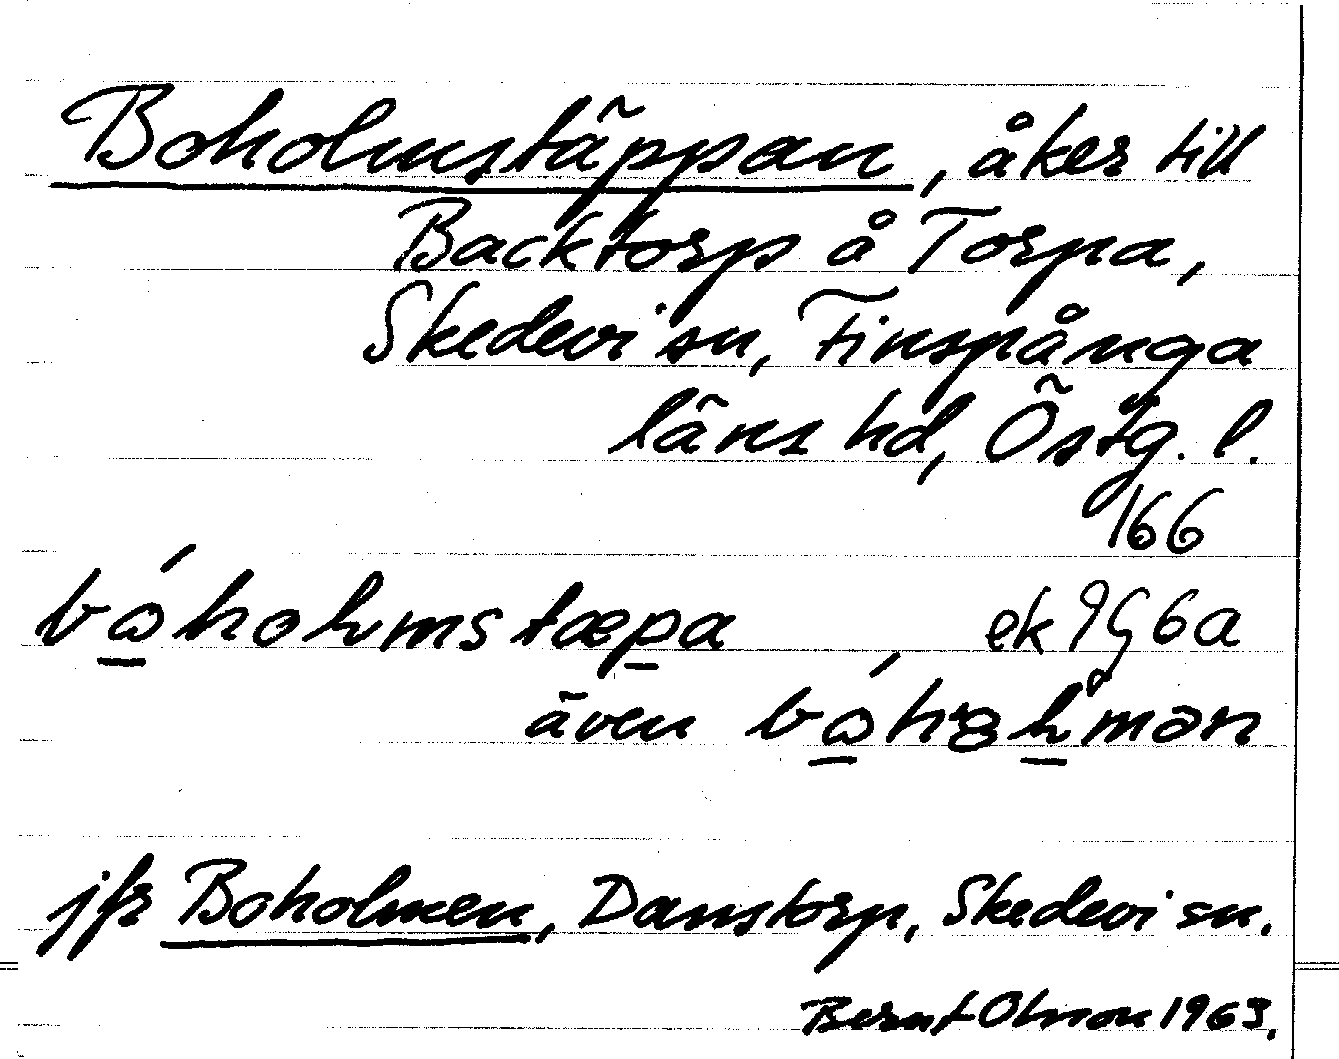 Boholmstäppan, åker till
Backtorp å Torpa,
Skedevi sn, Finspånga
läns hd, Östg. l.
166
bó̲holmstæp̲a ek 9G 6a
även
jfr Boholmen, Danstorp, Skedevi sn.
Bernt Olsson 1963.